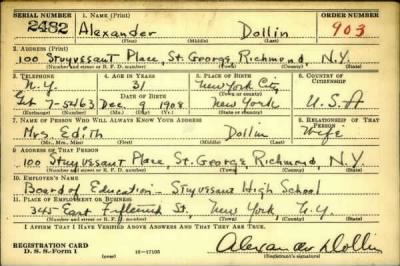 SERIAL NUMBER 1. NAME (Print) ORDER NUMBER
2482 Alexander Dollin 903
(First) (Middle) (Last)
2. ADDRESS (Print)
100 Stuyvesant Place, St. George, Richmond, N.Y.
(Number and street or R. F. D. number) (Town) (County) (State)
3. TELEPHONE 4. AGE IN YEARS 5. PLACE OF BIRTH 6. COUNTRY OF CITIZENSHIP
N.Y. 31 New York City
DATE OF BIRTH (Town or county)
7-5463 Dec. 9 1908 New York U.S.A
(Exchange) (Number) (Mo.) (Day) (Yr.) (State or country)
7. NAME OF PERSON WHO WILL ALWAYS KNOW YOUR ADDRESS 8. RELATIONSHIP OF THAT PERSON
Mrs. Edith Dollin Wife
(Mr., Mrs., Miss) (First) (Middle) (Last)
9. ADDRESS OF THAT PERSON
100 Stuyvesant Place, St. George, Richmond, N.Y.
(Number and street or R. F. D. number) (Town) (County) (State)
10. EMPLOYER'S NAME
Board of Education - Stuyvesant High School
11. PLACE OF EMPLOYMENT OR BUSINESS
345 East Fifteenth St., New York N.Y.
(Number and street or R. F. D. number) (Town) (County) (State)
I AFFIRM THAT I HAVE VERIFIED ABOVE ANSWERS AND THAT THEY ARE TRUE.
REGISTRATION CARD
D. S. S. Form 1 16-17105 Alexander Dollin
(Registrant's signature)